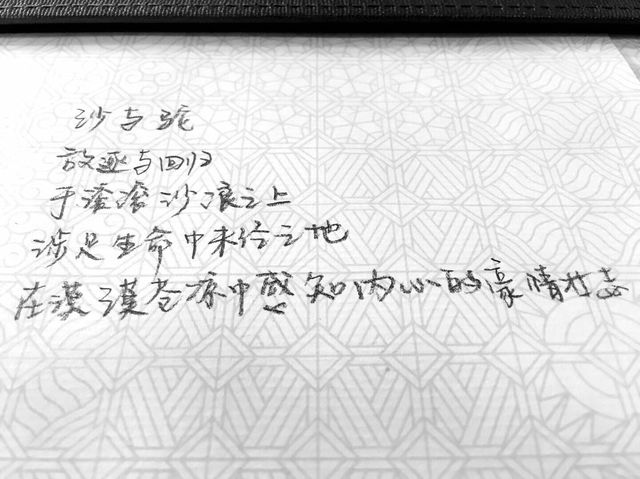 沙与驼
放逐与回归
于滚滚沙浪之上
涉足生命中未经之地
在漠漠苍凉中感知内心的豪情壮志